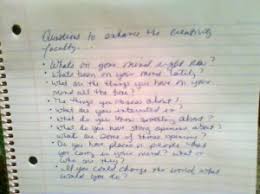 Questions to enhance the creativity
faculty...
• Whats on your mind right now?
• Whats been on your mind lately?
• What are the things you have on your
mind all the time?
• The things you obsess about?
• What are you interested in?
• What do you know something about?
• What do you have strong opinions about?
What are some of those opinions?
• Do you have places or people who
you carry in your mind? what or
who are they?
• If you could change the world what
would you do?